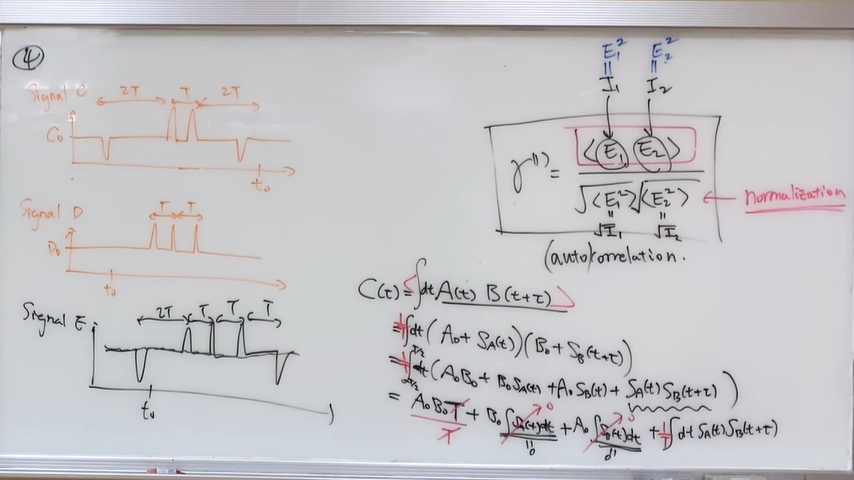 ④
Signal C
2T T 2T
C₀
t₀
Signal D
T T
D₀
t₀
Signal E
2T T T T
t₀
E₁² E₂²
= =
I₁ I₂
γ⁽¹⁾ = ⟨E₁ E₂⟩ / √⟨E₁²⟩ √⟨E₂²⟩
= =
√I₁ √I₂
← normalization
(auto)korrelation.
C(τ) = ⟨∫dt A(t) B(t+τ)⟩
= 1/T ∫dt (A₀ + S_A(t)) (B₀ + S_B(t+τ))
= 1/T ∫dt (A₀B₀ + B₀S_A(t) + A₀S_B(t) + S_A(t) S_B(t+τ))
= A₀B₀T/T + B₀ ∫S_A(t)dt → 0 + A₀ ∫S_B(t)dt → 0 + 1/T ∫dt S_A(t) S_B(t+τ)